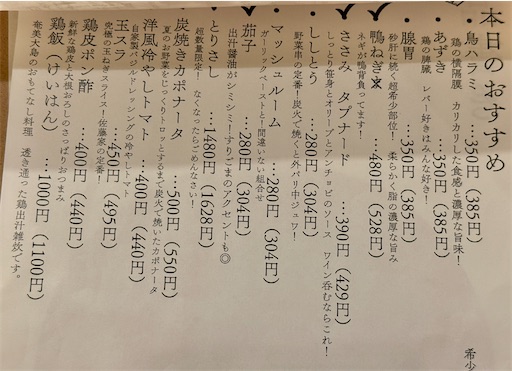 本日のおすすめ
鳥ハラミ …350円(385円)
鶏の横隔膜 カリカリした食感と濃厚な旨味!
あずき …350円(385円)
鶏の脾臓 レバー好きはみんな好き!
腺胃 …350円(385円)
砂肝に続く超希少部位! 柔らかく脂の濃厚な旨み
鴨ねぎ …480円(528円)
ネギが鴨背負ってます!
ささみ タプナード …390円(429円)
しっとり笹身とオリーブとアンチョビのソース ワイン呑むならこれ!
ししとう …280円(304円)
野菜串の定番!炭火で焼くと外パリ中ジュワ!
マッシュルーム …280円(304円)
ガーリックペーストと!間違いない組合せ
茄子 …280円(304円)
出汁醤油がシミシミ!すりごまのアクセントも◎
とりさし …1480円(1628円)
超数量限定! なくなったらごめんなさい!
炭焼きカポナータ …500円(550円)
夏のお野菜をじっくりトロッとするまで炭火で焼いたカポナータ
洋風冷やしトマト …400円(440円)
自家製バジルドレッシングの冷やしトマト
玉スラ …450円(495円)
究極の玉ねぎスライス!佐藤家の定番!
鶏皮ポン酢 …400円(440円)
新鮮な鶏皮と大根おろしのさっぱりおつまみ
鶏飯(けいはん) …1000円(1100円)
奄美大島のおもてなし料理 透き通った鶏出汁雑炊です。
希少